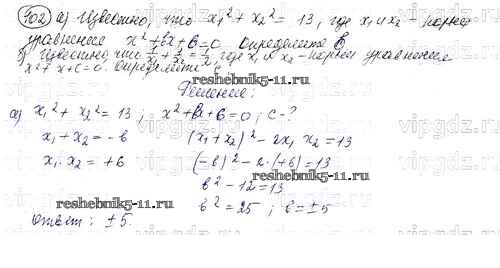 402 а) Известно, что x₁² + x₂² = 13, где x₁ и x₂ - корни
уравнения x² + bx + 6 = 0 Определите b
б) Известно, что 1/x₁ + 1/x₂ = где x₁ и x₂ - корни уравнения
x² + x + c = 0. Определите
Решение:
а) x₁² + x₂² = 13; x² + bx + 6 = 0; c - ?
x₁ + x₂ = -b (x₁ + x₂)² - 2x₁ x₂ = 13
x₁ · x₂ = +6 (-b)² - 2·(+6) = 13
b² - 12 = 13
b² = 25; b = ±5
Ответ: ±5.
vipgdz.ru
www.reshebnik5-11.ru
reshebnik5-11.ru